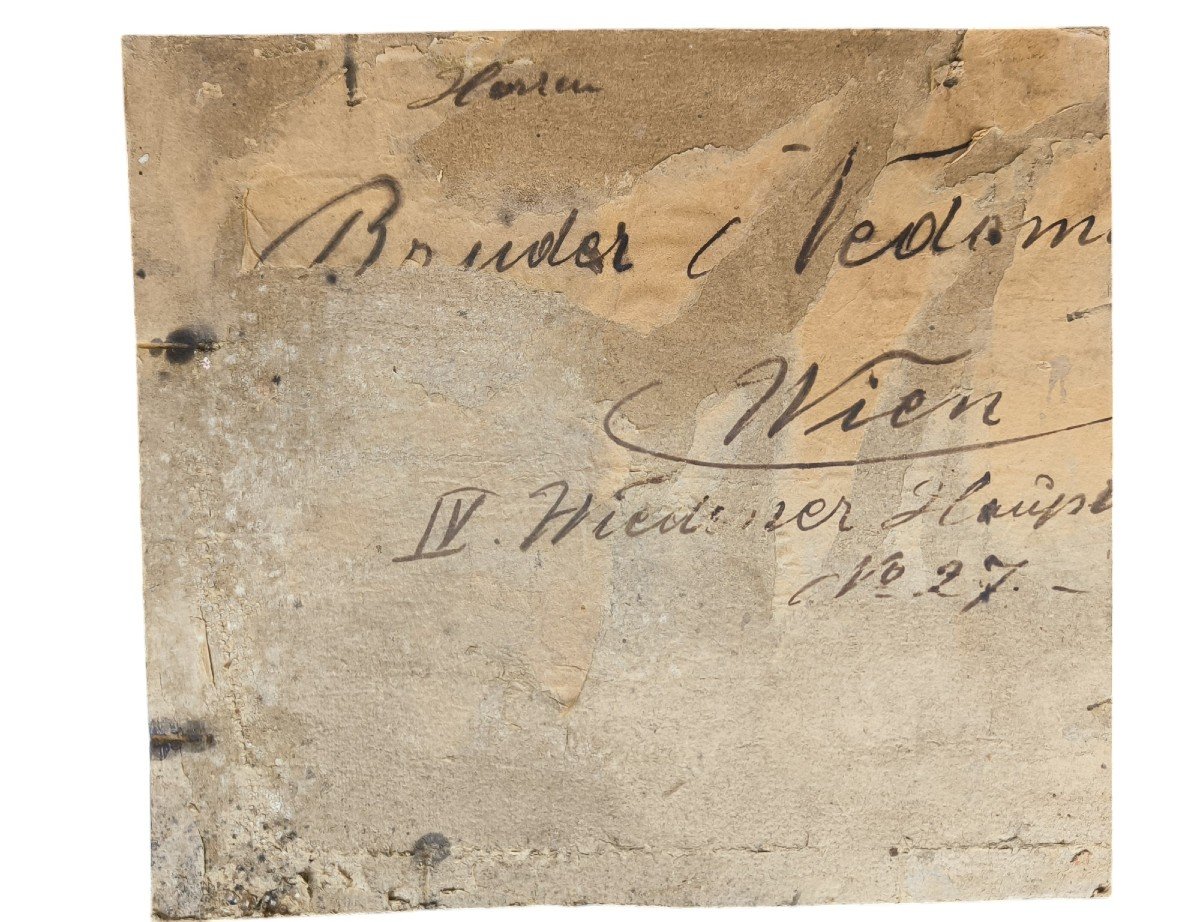 Herren
Bruder Nedom
Wien
IV. Wiedener Haupt
No 27. –